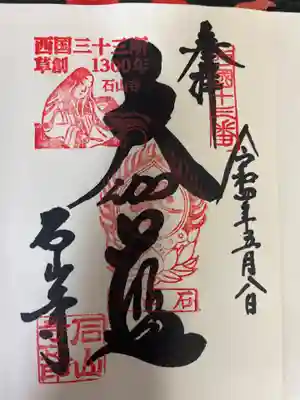 奉拝
西国十三番
令和四年五月八日
西国三十三所
草創1300年
石山寺
大伽藍
石山寺
石山寺印